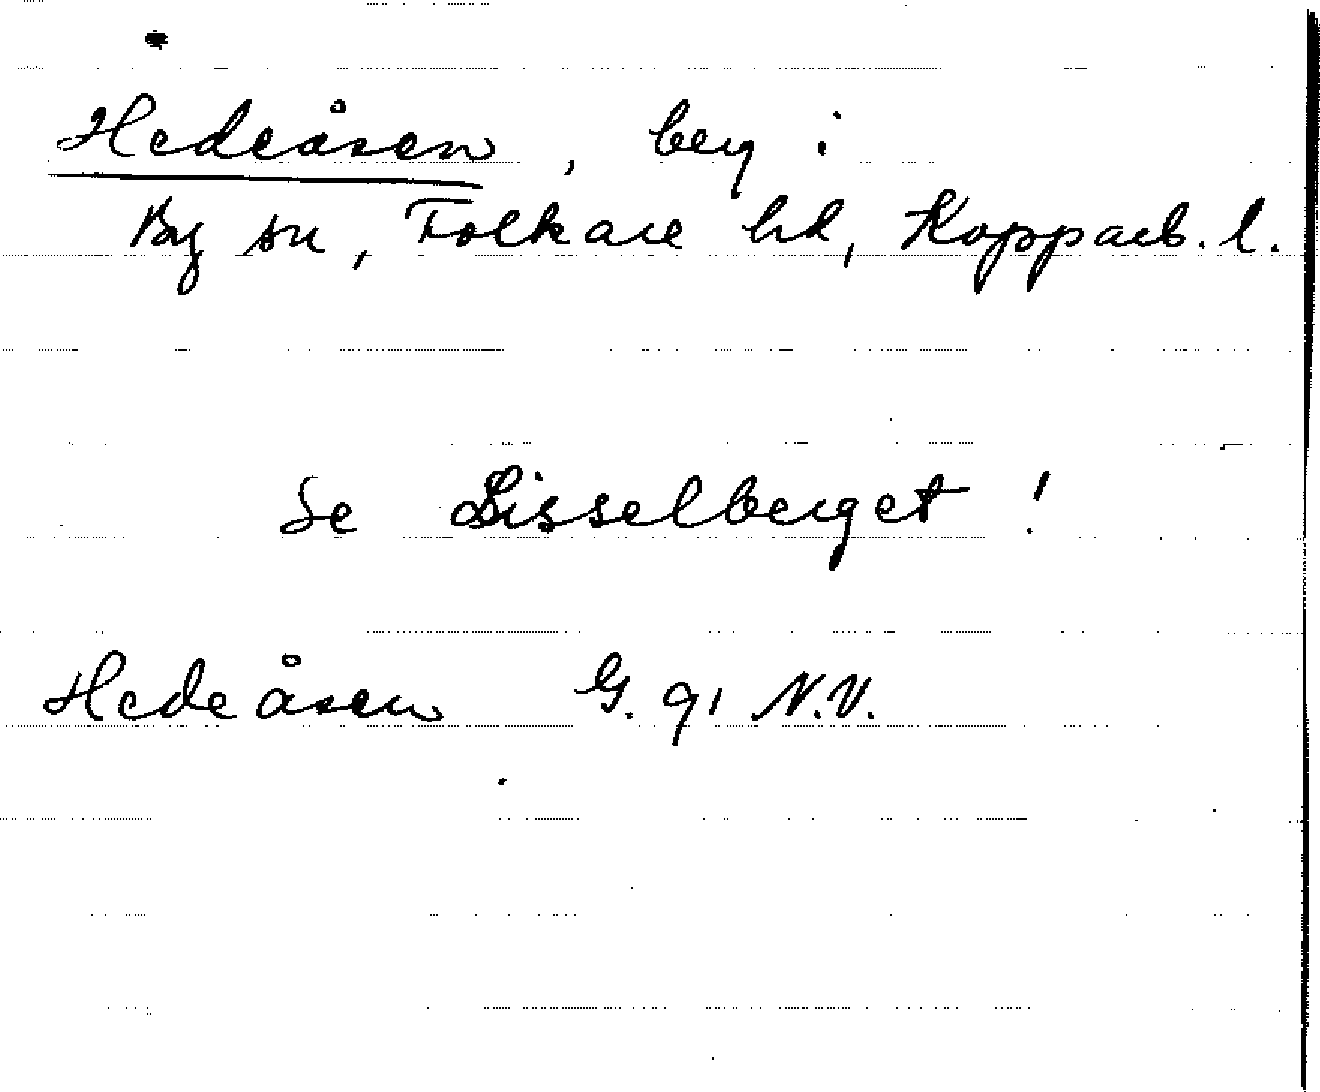 Hedeåsen, berg i
By sn, Folkare hd, Kopparb. l.
Se Lisselberget!
Hedeåsen G. 91 N.V.